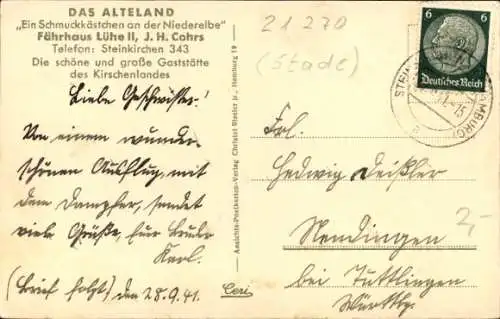 DAS ALTELAND
„Ein Schmuckkästchen an der Niederelbe“
Fährhaus Lühe II, J. H. Cohrs
Telefon: Steinkirchen 343
Die schöne und große Gaststätte
des Kirschenlandes
Liebe Geschwister!
Von einem wunder
schönen Ausflug, mit
dem Dampfer, sendet
viele Grüße, Euer Bruder
Karl.
(Brief folgt) den 28.9.41.
Ansichts-Postkarten-Verlag Christel Rieeler jr., Hamburg 19
Ceri
21 270
(Stade)
6 6
Deutsches Reich
STEIN HAMBURG
Frl.
Hedwig
Nendingen
bei Tuttlingen
Württbg.
2,-